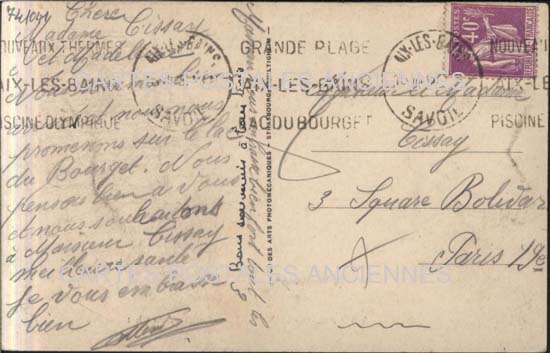 74/044
Chère
Madame Cissay
AIX-LES-BAINS
SAVOIE
promenons sur le lac
du Bourget. Nous
pensons bien à vous
et nous souhaitons
à Monsieur Cissay
meilleure santé
Je vous embrasse
bien
Bons souvenirs à tous
DES ARTS PHOTOMÉCANIQUES - STRASBOURG-SCHILTIGHEIM
NOUVEAUX THERMES
AIX-LES-BAINS
PISCINE OLYMPIQUE
GRANDE PLAGE
AIX-LES-BAINS
LAC DU BOURGET
AIX-LES-BAINS
SAVOIE
NOUVE
AIX-LE
PISCINE
POSTES
40c
Monsieur et Madame
Cissay
3 Square Bolivar
Paris 19e
CARTES POSTALES ANCIENNES
CARTES POSTALES ANCIENNES